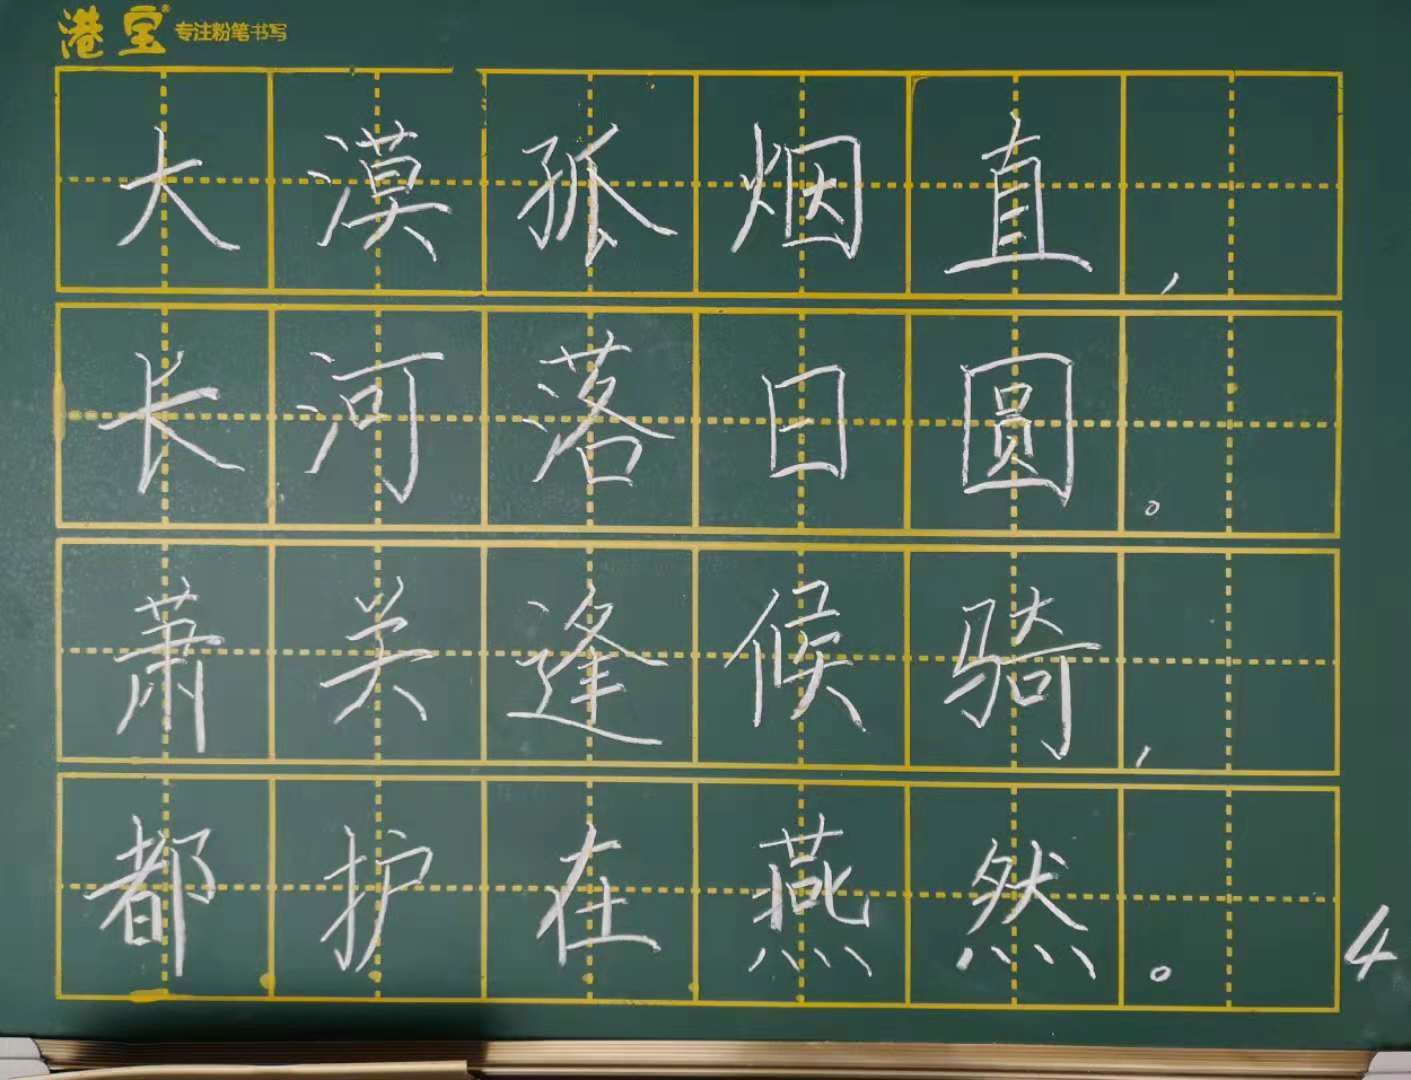 港宝® 专注粉笔书写
大漠孤烟直，
长河落日圆。
萧关逢候骑，
都护在燕然。
4